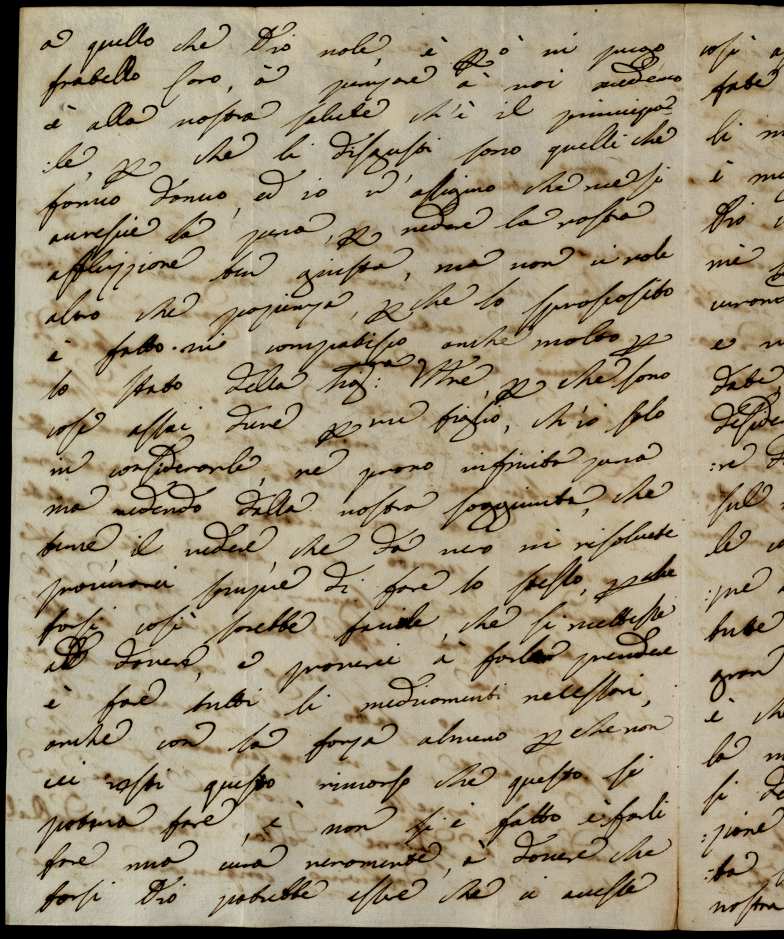 a quello che Dio vole, è però vi prego
fratello Caro, à pensare à voi medemo
è alla vostra salute ch'è il principa
:le, per che li disgusti sono quelli che
fanno danno, ed io v'assicuro che
la pena, per vedere la vostra
afflizzione ben giusta, ma non ci vole
altro che pazienza, per che lo sproposito
è fatto. vi compatisco anche molto per
lo stato della Sig:ra Vtre, per che sono
cose assai dure per un figlio, ch'io solo
in considerarle, ne provo infinita pena
ma vedendo dalla vostra soggiunta, che
il vedere, che da vero vi risolvete
procurarei sempre di fare lo stesso, per che
forsi così sarebbe facile, che si mettesse
al dovere, e provarei à farla prendere
è fare tutti li medicamenti necessari,
anche con la forza almeno per che non
vi resti questo rimorso che questo si
poteva fare, è non si è fatto è farli
fare una cura veramente, à dovere che
forsi Dio potrebbe essere che ci
così
fate
li
è
Dio
mè

e
date
deside
:re
sul
le
:pre
tutte
gran
è ch
la
si
:zione
:ta
nostra